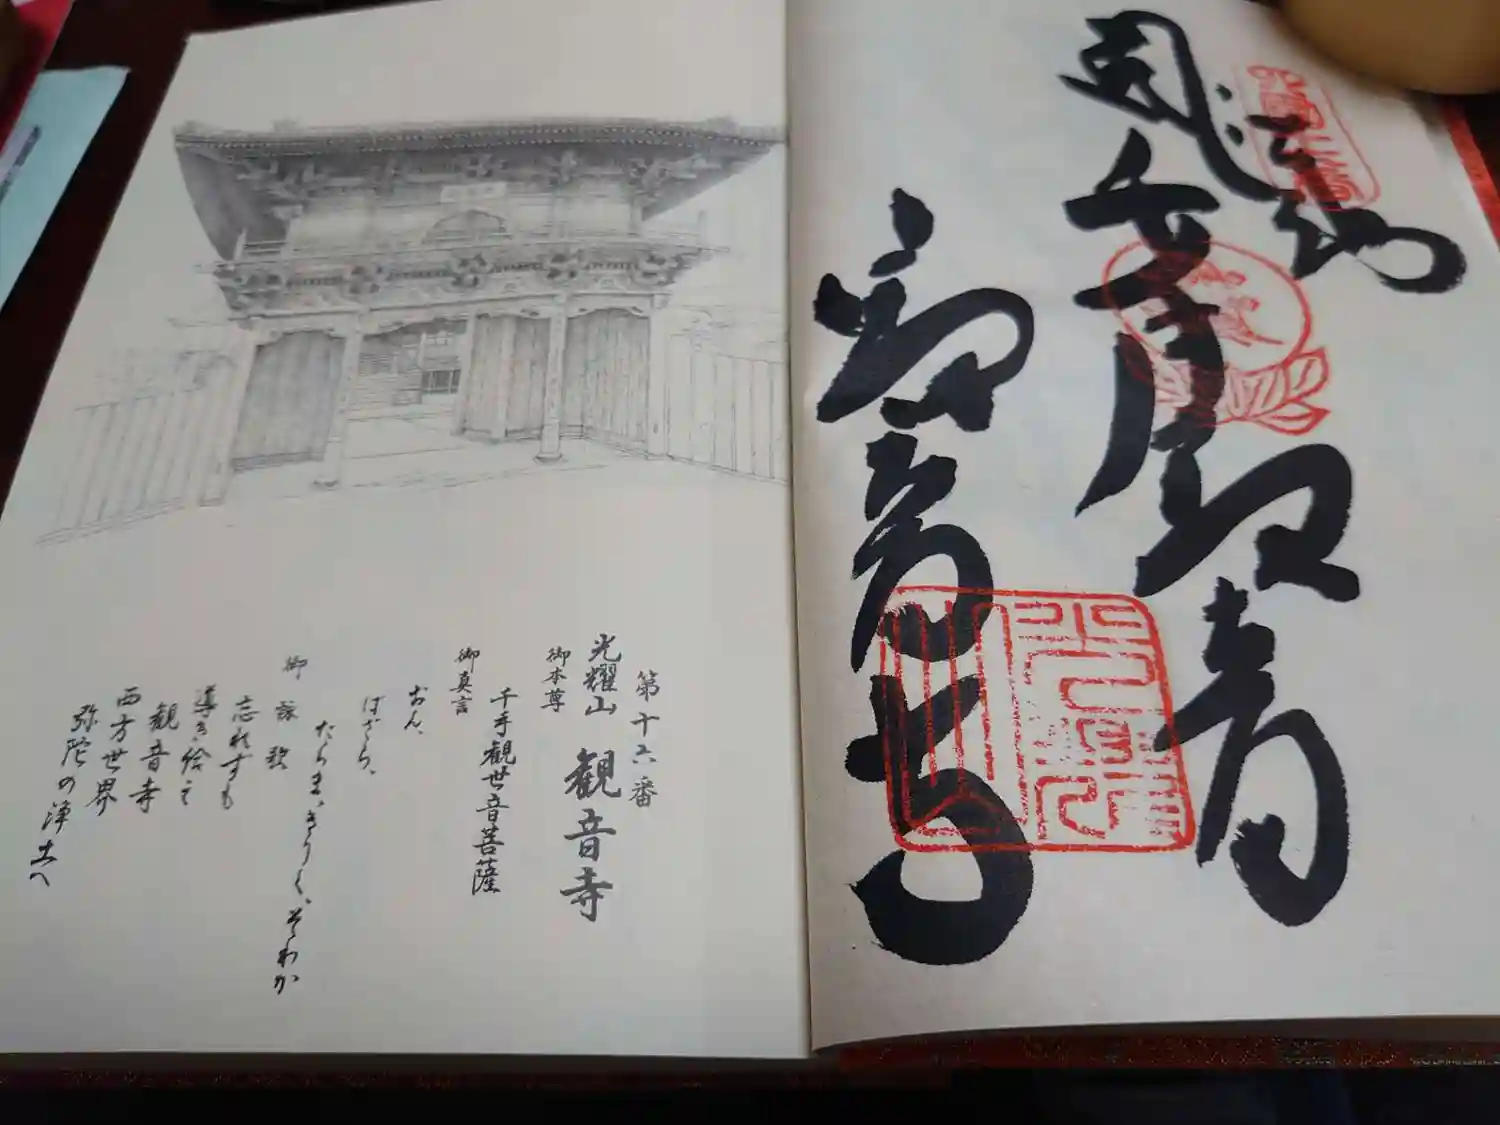 千手観音
観音寺
第十六番
光耀山 観音寺
御本尊
千手観世音菩薩
御真言
おん、
ばざら、
たらま、きりく、そわか
御詠歌
忘れずも
導き給え
観音寺
西方世界
弥陀の浄土へ